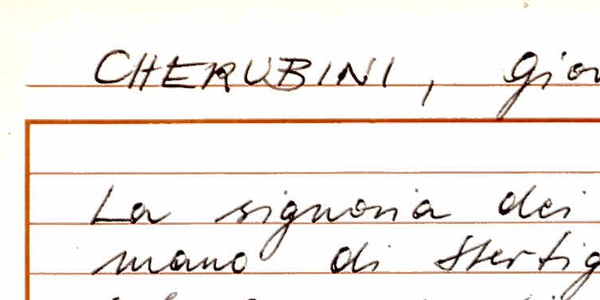 CHERUBINI, Gio
La signoria dei
mano di Stertig